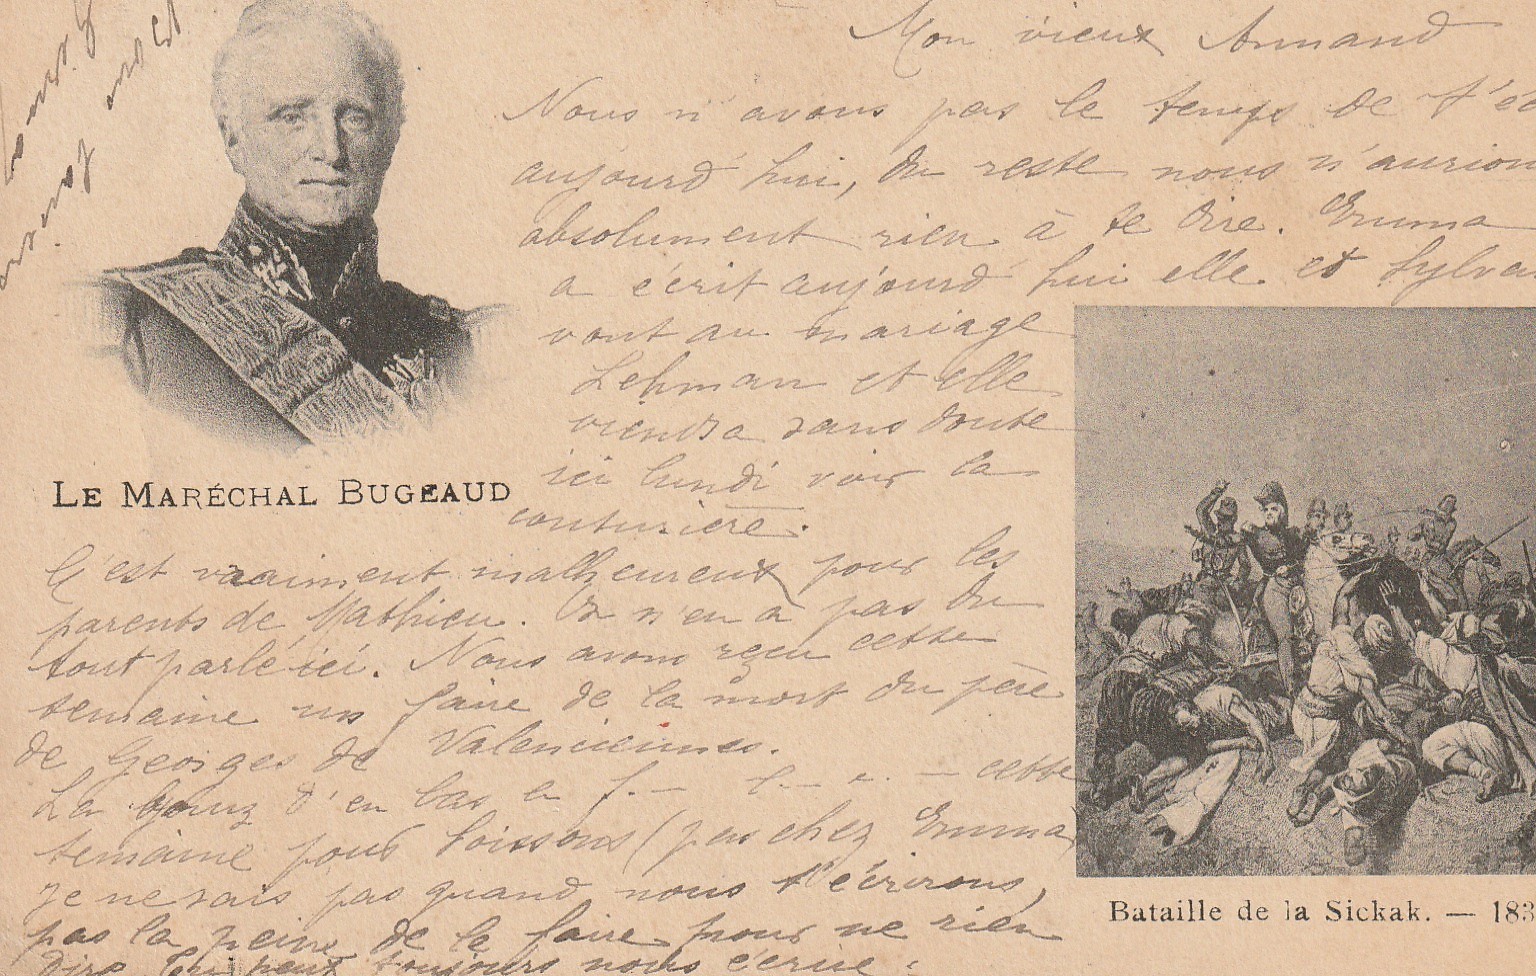 Mon vieux Armand
Nous n'avons pas le temps de t'éc
aujourd'hui, du reste nous n'aurion
absolument rien à te dire. Emma
a écrit aujourd'hui elle et Sylva
vont au mariage
Lehman et elle
viendra sans doute
ici lundi voir la
couturière.
LE MARÉCHAL BUGEAUD
C'est vraiment malheureux pour les
parents de Mathieu. On n'en a pas du
tout parlé ici. Nous avons reçu cette
semaine un faire de la mort du père
de Georges de Valenciennes.
La d'en bas cette
semaine pour Soissons (pas chez Emma)
Je ne sais pas quand nous t'écrirons,
pas la peine de le faire pour ne rien
dire. Tu peux toujours nous écrire.
Bataille de la Sickak. — 183